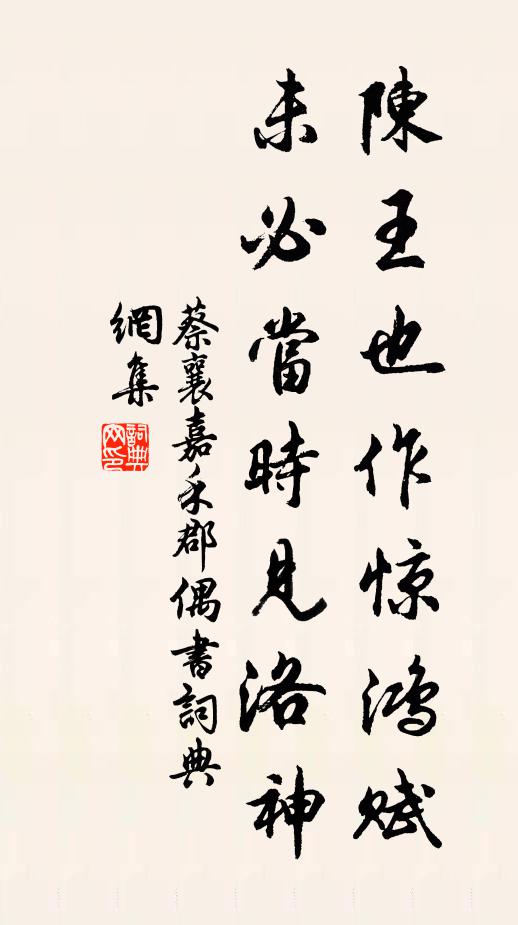 陳王也作惊鸿赋
未必當時見洛神
蔡襄嘉禾郡偶書詞典
網集
詞典網印